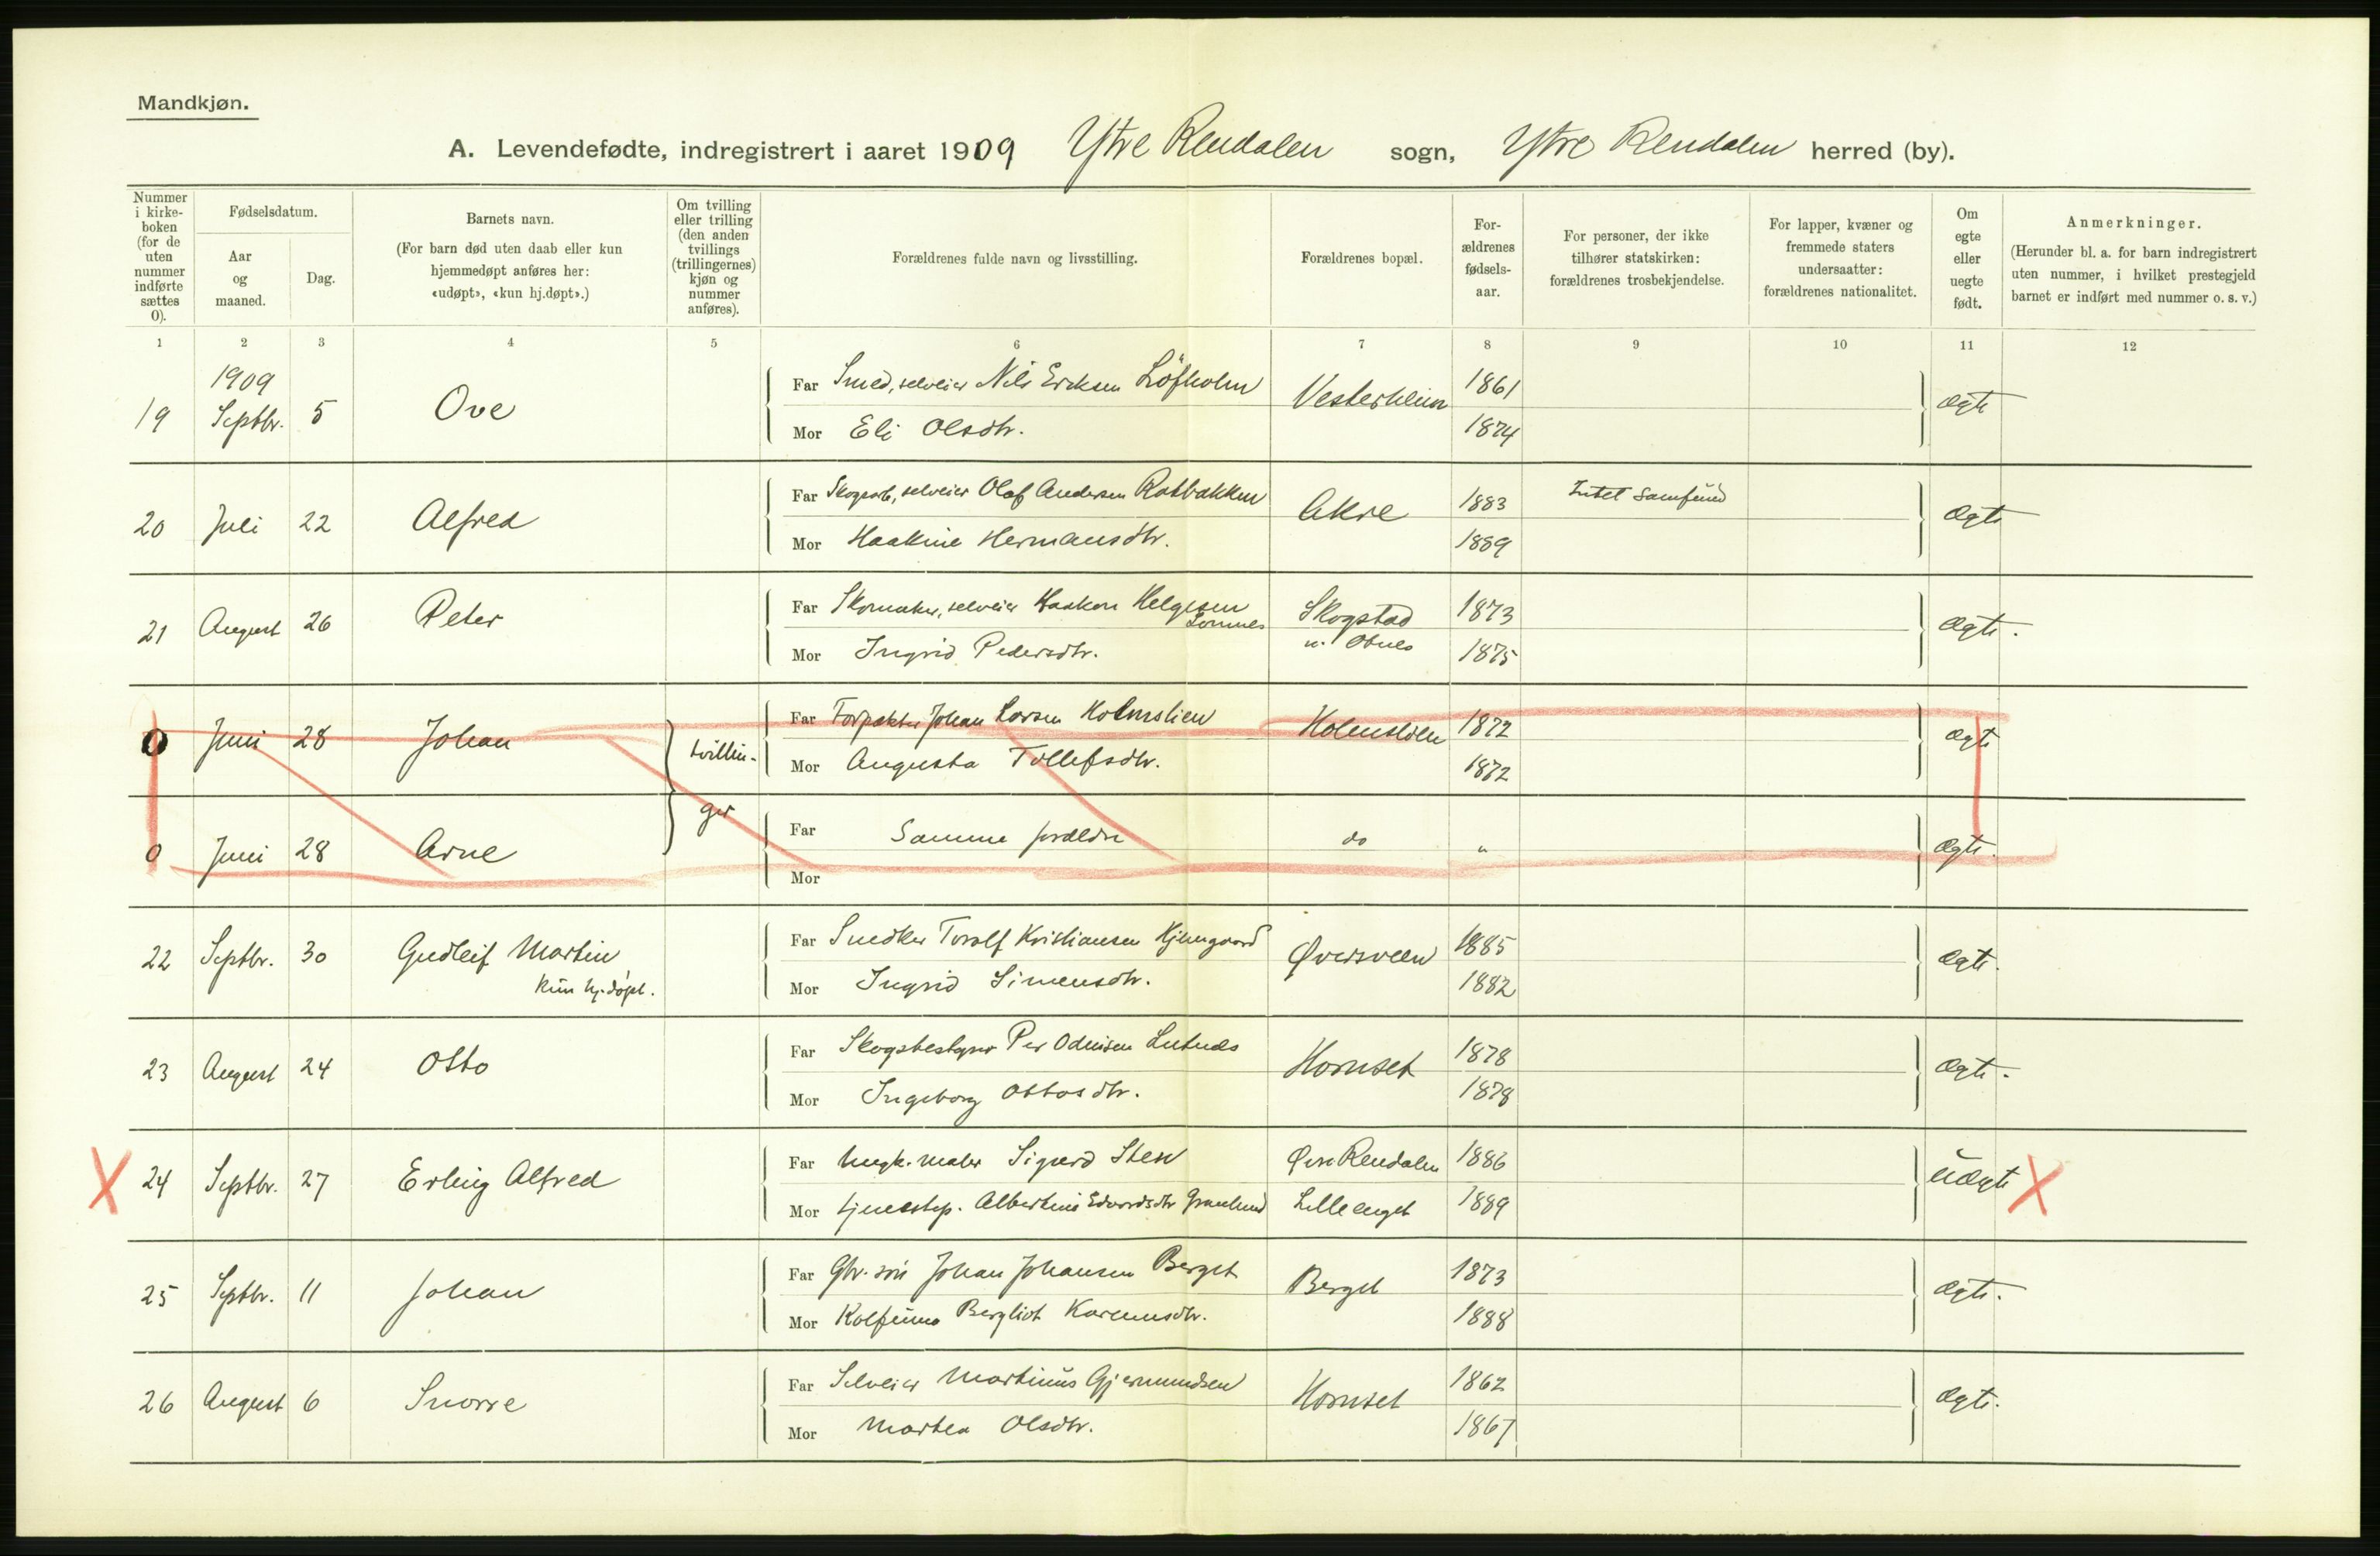 Mandkjøn.
A. Levendefødte, indregistrert i aaret 1909 Ytre Rendalen sogn, Ytre Rendalen herred (by).
Nummer i kirke- boken (for de uten nummer indførte sættes 0).
Fødselsdatum.
Aar og maaned.
Dag.
Barnets navn.
(For barn død uten daab eller kun hjemmedøpt anføres her: «udøpt», «kun hj.døpt».)
Om tvilling eller trilling (den anden tvillings (trillingernes) kjøn og nummer anføres).
Forældrenes fulde navn og livsstilling.
Forældrenes bopæl.
For- ældrenes fødsels- aar.
For personer, der ikke tilhører statskirken: forældrenes trosbekjendelse.
For lapper, kvæner og fremmede staters undersaatter: forældrenes nationalitet.
Om egte eller uegte født.
Anmerkninger.
(Herunder bl. a. for barn indregistrert uten nummer, i hvilket prestegjeld barnet er indført med nummer o. s. v.)
1 2 3 4 5 6 7 8 9 10 11 12
1909
19 Septbr. 5 Ove Far Smed, selveier Nils Eriksen Löfholm Vesterheim 1861 ægte
Mor Eli Olsdtr. 1874
20 Juli 22 Alfred Far Skogsarb., selveier Olaf Andersen Rotbakken Akre 1883 Intet samfund ægte
Mor Haakine Hermansdtr. 1889
21 August 26 Peter Far Skomaker, selveier Haakon Helgesen Lomnes Skogstad 1873 ægte.
Mor Ingrid Pedersdtr. 1875
0 Juni 28 Johan tvillin- Far Forpakter Johan Larsen Holmslien Holmslien 1872 ægte
Mor Augusta Tollefsdtr. 1872
0 Juni 28 Arne ger Far Samme forældre do " ægte.
Mor
22 Septbr. 30 Gudleif Martin Far Snedker Toralf Kristiansen Kjerngaard Øversveen 1885 ægte.
kun hj.døpt. Mor Ingrid Simensdtr. 1882
23 August 24 Otto Far Skogsbestyrer Per Odinsen Lutnæs Hornset 1878 ægte.
Mor Ingeborg Ottosdtr. 1878
X 24 Septbr. 27 Erling Alfred Far Ungk. maler Sigurd Sten Øvre Rendalen 1886 uægte X
Mor tjenestep. Albertine Edvardsdtr Granlund Lilleenget 1889
25 Septbr. 11 Johan Far Gbr. søn Johan Johansen Berget Berget 1873 ægte.
Mor Kolfinna Bergliot Karenusdtr. 1888
26 August 6 Snorre Far Selveier Martinus Gjermundsen Hornset 1862 ægte.
Mor Martea Olsdtr. 1867